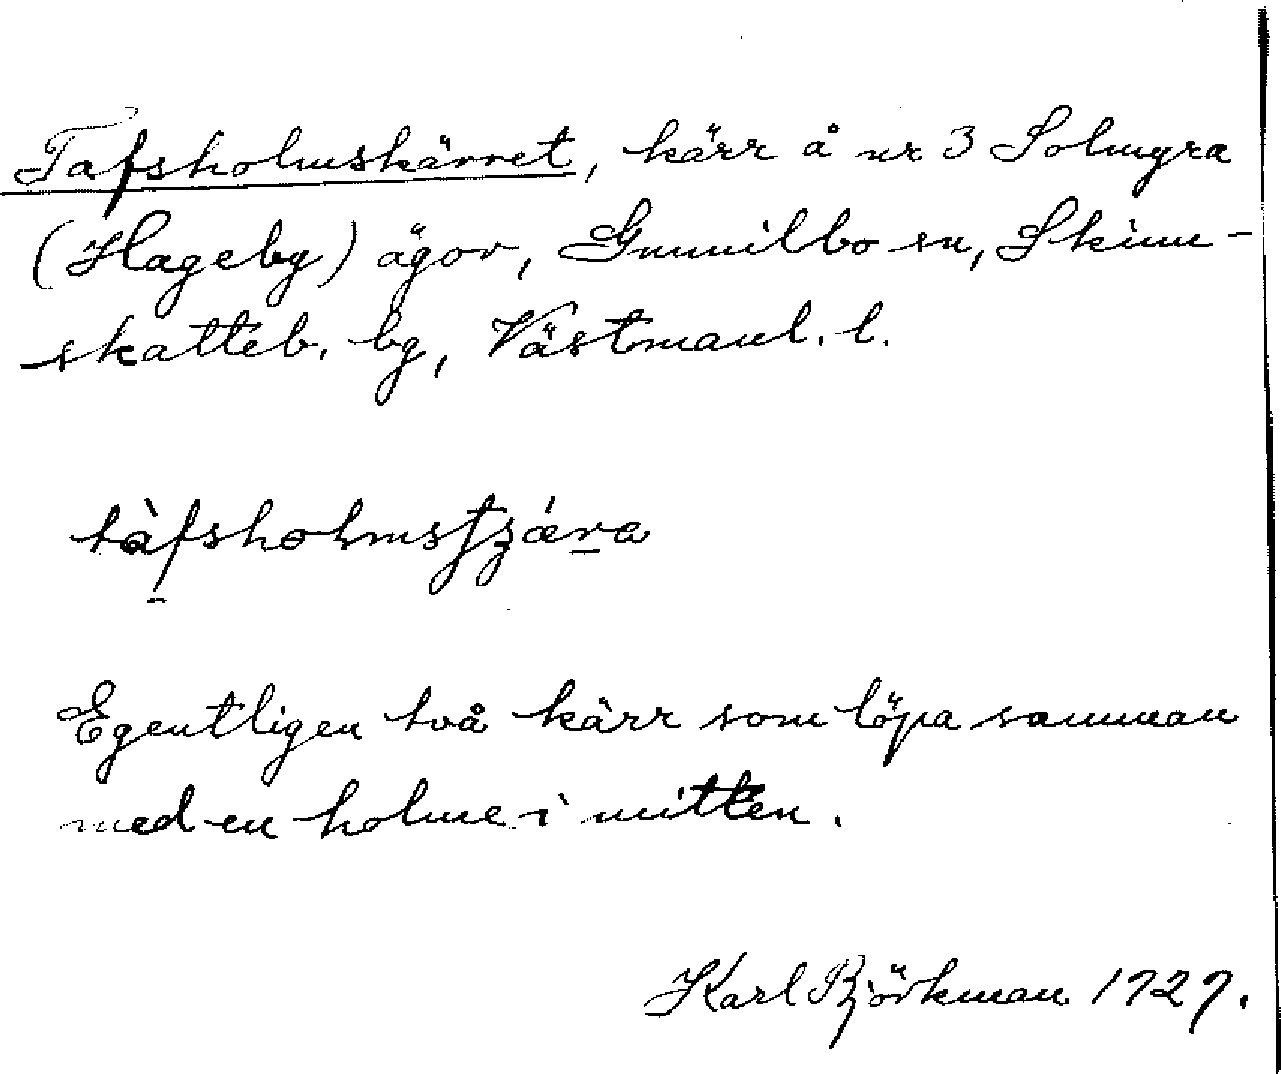 Tafsholmskärret, kärr å nr 3 Solmyra
(Hageby) ägor, Gunnilbo sn, Skinn-
skatteb. bg, Västmanl. l.
tàfsholmsʃʒǽra
Egentligen två kärr som löpa samman
med en holme i mitten.
Karl Björkman 1929.